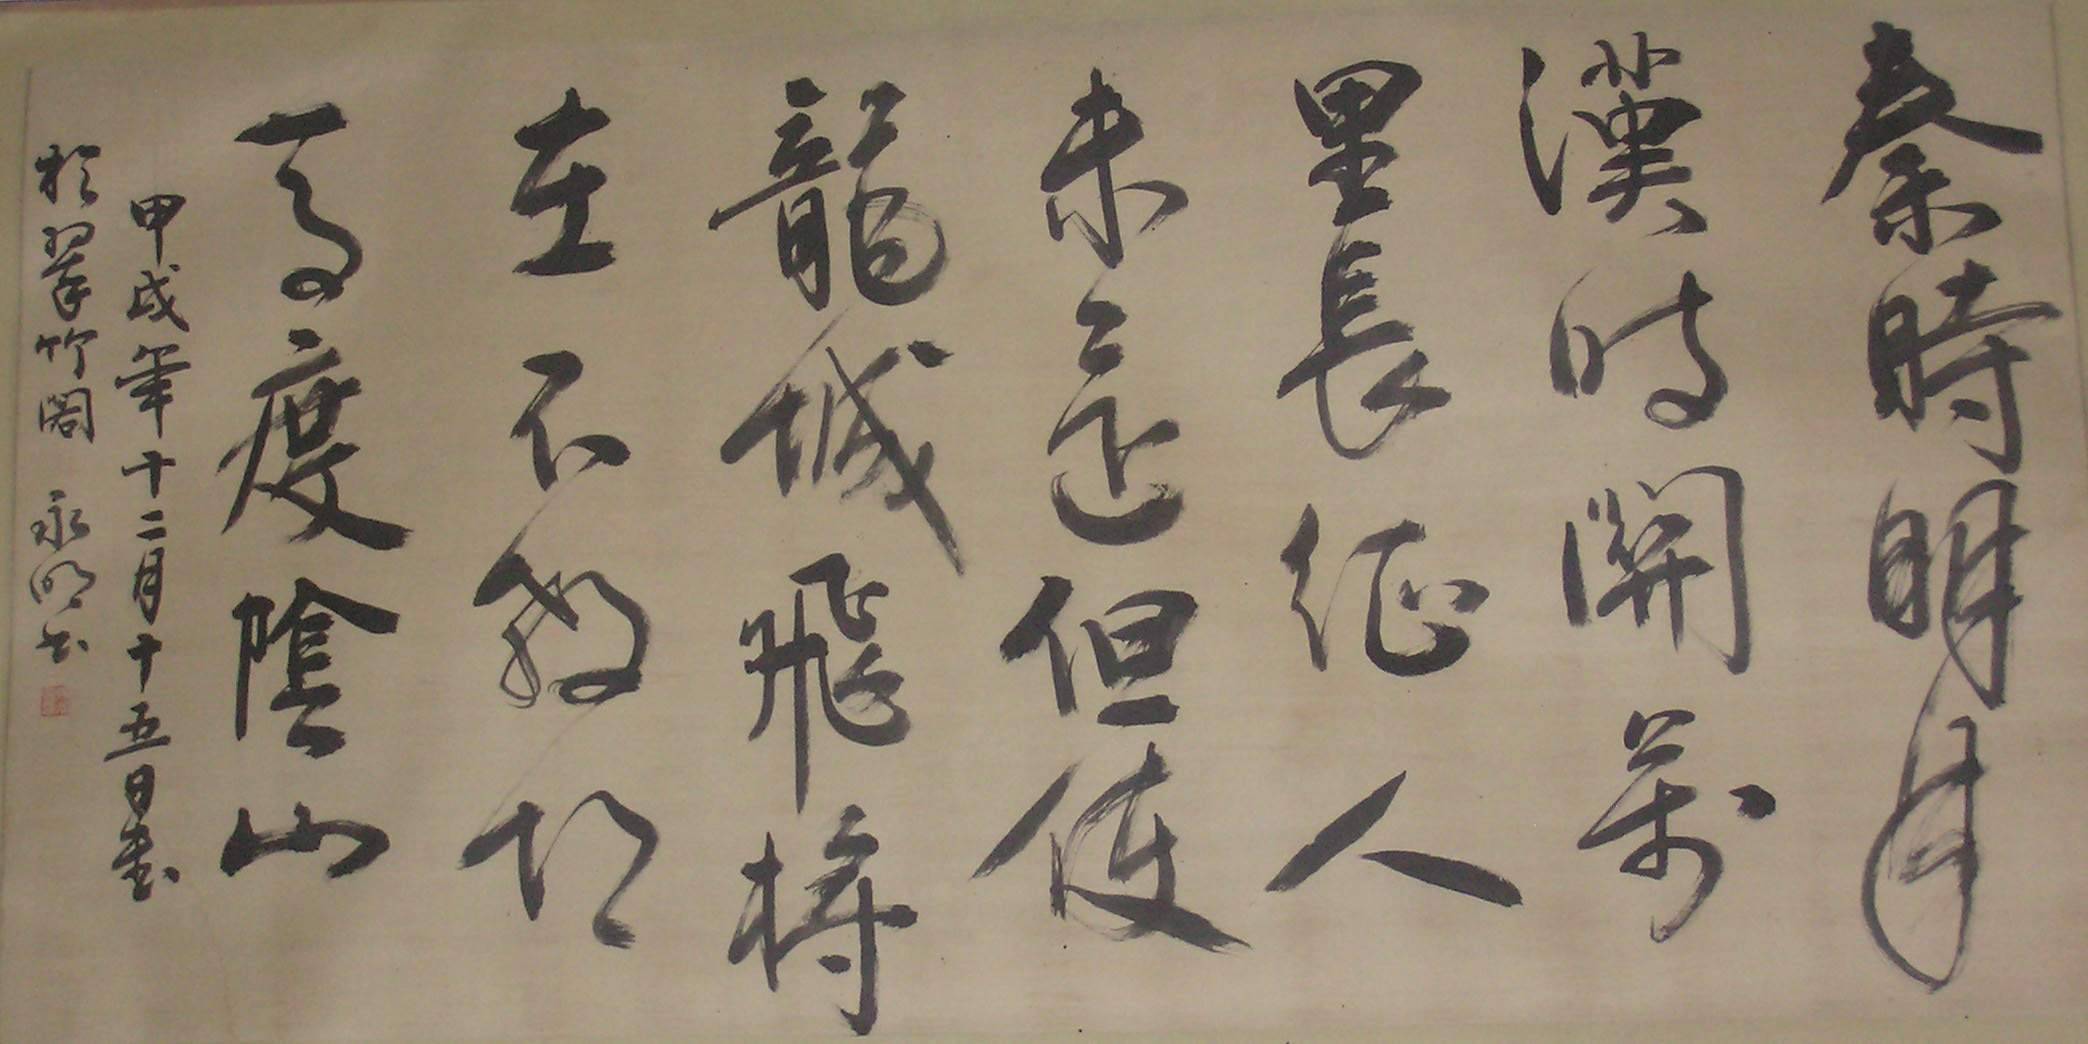 秦時明月
漢時關萬
里長征人
未還但使
龍城飛将
在不教胡
馬度陰山
甲戌年十二月十五日書
於翠竹閣 永明书